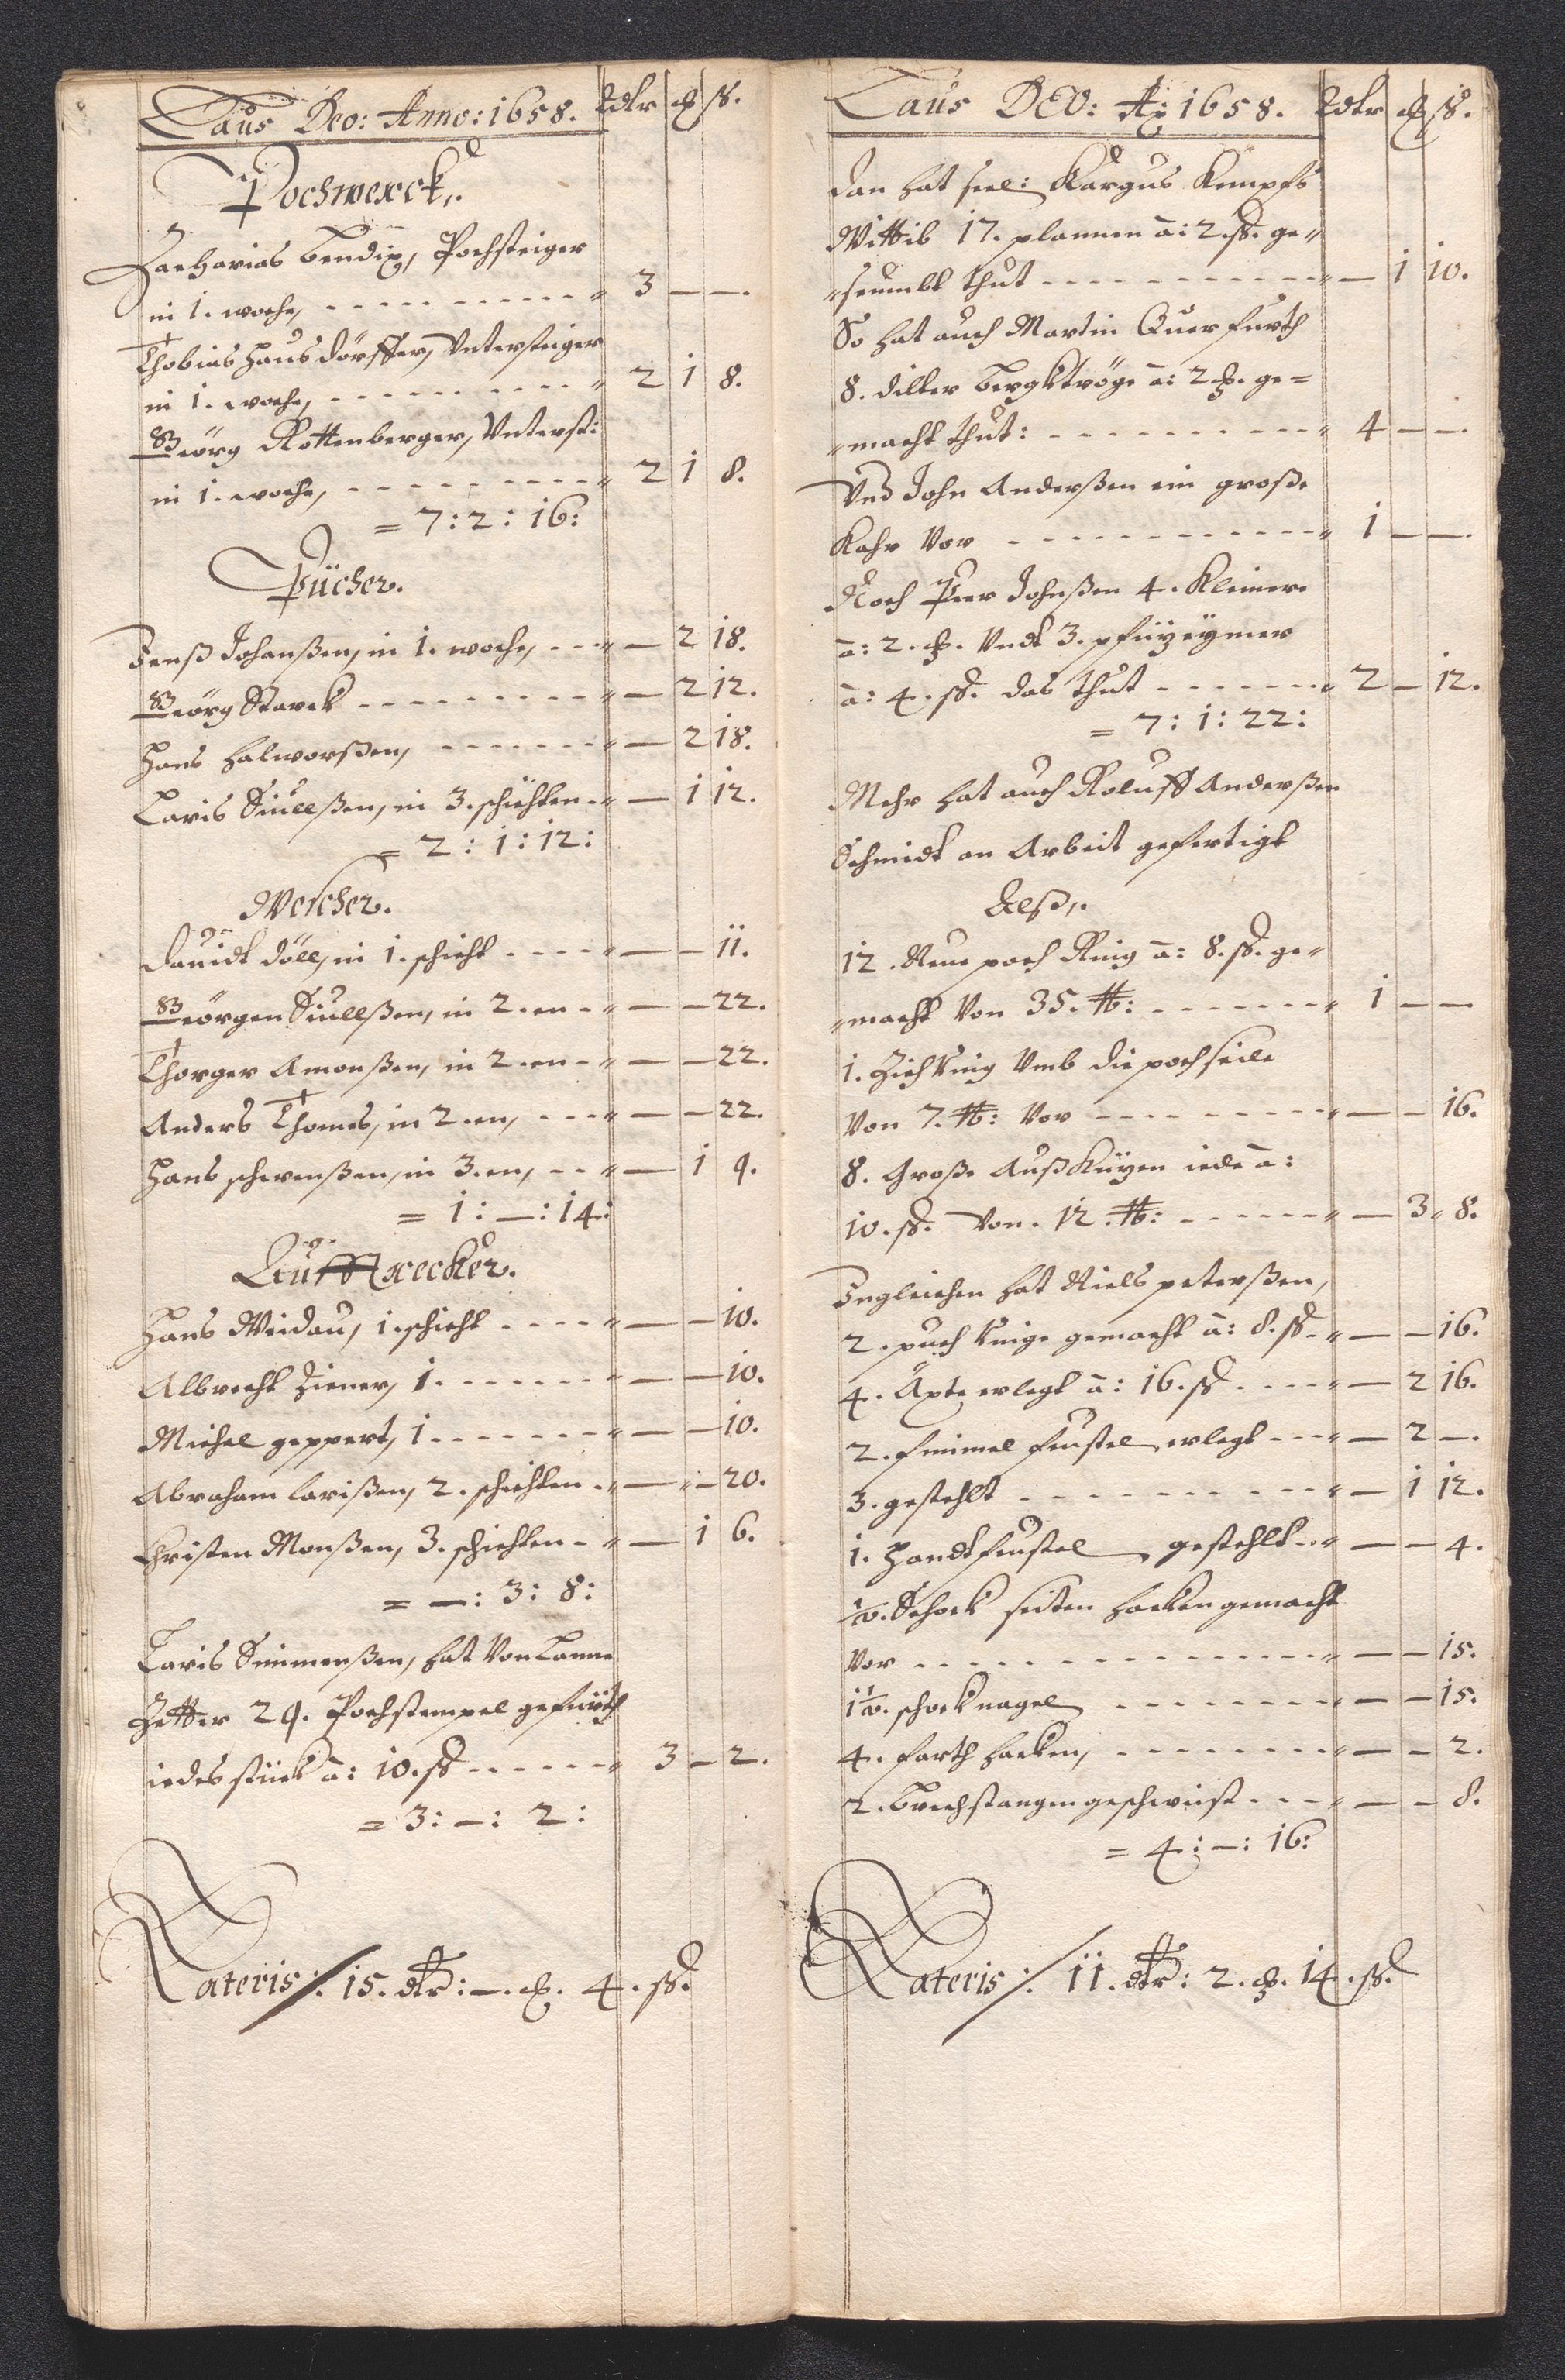 Laus Deo: Anno: 1658. Rdlr ȝ ß.
Pochwerck,.
Zacharias Bendix, Pochsteiger
in 1. woche, - - - - - - - - - - " 3 — —.
Thobias Haus dörffer, Untersteiger
in 1. woche, - - - - - - - - - - " 2 1 8.
Geörg Rottenberger, Unterst:
in 1. woche, - - - - - - - - - - " 2 1 8.
= 7: 2: 16:
Pücher.
Jenß Johanßen, in 1. woche, - - - " — 2 18.
Geörg Starck - - - - - - - - - " — 2 12.
Hans Halworßen, - - - - - - - " — 2 18.
Laris Siullßen, in 3. schichten - " — 1 12.
= 2: 1: 12:
Wescher.
Dauidt Döll, in 1. schicht - - - - " — — 11.
Geörgen Siullßen, in 2. en - " — — 22.
Thorger Amonßen, in 2. en - " — — 22.
Anders Thomes, in 2. en, - - - " — — 22.
Hans schwenßen, in 3. en, - - " — 1 9.
= 1: —: 14:
Auffrecker.
Hans Weidau, 1. schicht - - - - " — — 10.
Albrecht Ziener, 1. - - - - - - " — — 10.
Michel geppert, 1 - - - - - - - " — — 10.
Abraham Larißen, 2. schichten - " — — 20.
Christen Monßen, 3. schichten - " — 1 6.
= —: 3: 8:
Laris Simmenßen, hat Von Lanne
Zetter 29. Pochstempel gefürth
iedes stück à: 10. ß - - - - - " 3 — 2.
= 3: —: 2:
Lateris:/: 15. dlr: —. ȝ. 4. ß.
Laus DEO: Ao: 1658. Rdlr ȝ ß.
Dan hat seel: Kargus Kempfs
Wittib 17. plannen à: 2. ß. ge"
"seumbt thut - - - - - - - - - - " — 1 10.
So hat auch Martin Querfurth
8. diller Bergktröge à: 2 ȝ. ge=
"macht thut: - - - - - - - - - " 4 — —.
Und John Anderßen ein große
Kahr Vor - - - - - - - - - - - " 1 — —.
Noch Peer Johnßen 4. Kleinere
à: 2. ȝ. Undt 3. pfüzeymer
à: 4. ß. das thut - - - - - - " 2 — 12.
= 7: 1: 22:
Mehr hat auch Roluff Anderßen
Schmidt an Arbeit gefertigt
Alß,.
12. Neue poch Ring à: 8. ß. ge"
"macht Von 35. ℔: - - - - - - " 1 — —
1. Ziehring Umb die pochseile
Von 7. ℔: Vor - - - - - - - - - " — — 16.
8. Große Außküzen iede à:
10. ß. Von. 12. ℔: - - - - - - " — 3 8.
Ingleichen hat Niels peterßen,
2. puch Ringe gemacht à: 8. ß - " — — 16.
4. Äxte erlegt à: 16. ß - - - - " — 2 16.
2. fimmel feustel erlegt - - - " — 2 —.
3. gestehlt - - - - - - - - - - " — 1 12.
1. Handtfeustel gestehlt - - " — — 4.
½. Schock seiten hacken gemacht
Vor - - - - - - - - - - - - - - " — — 15.
1½. schock nagel - - - - - - - - " — — 15.
4. farth hacken, - - - - - - - - " — — 2.
2. Brechstangen geschweist - - - " — — 8.
= 4: —: 16:
Lateris:/: 11. dlr: 2. ȝ. 14. ß.